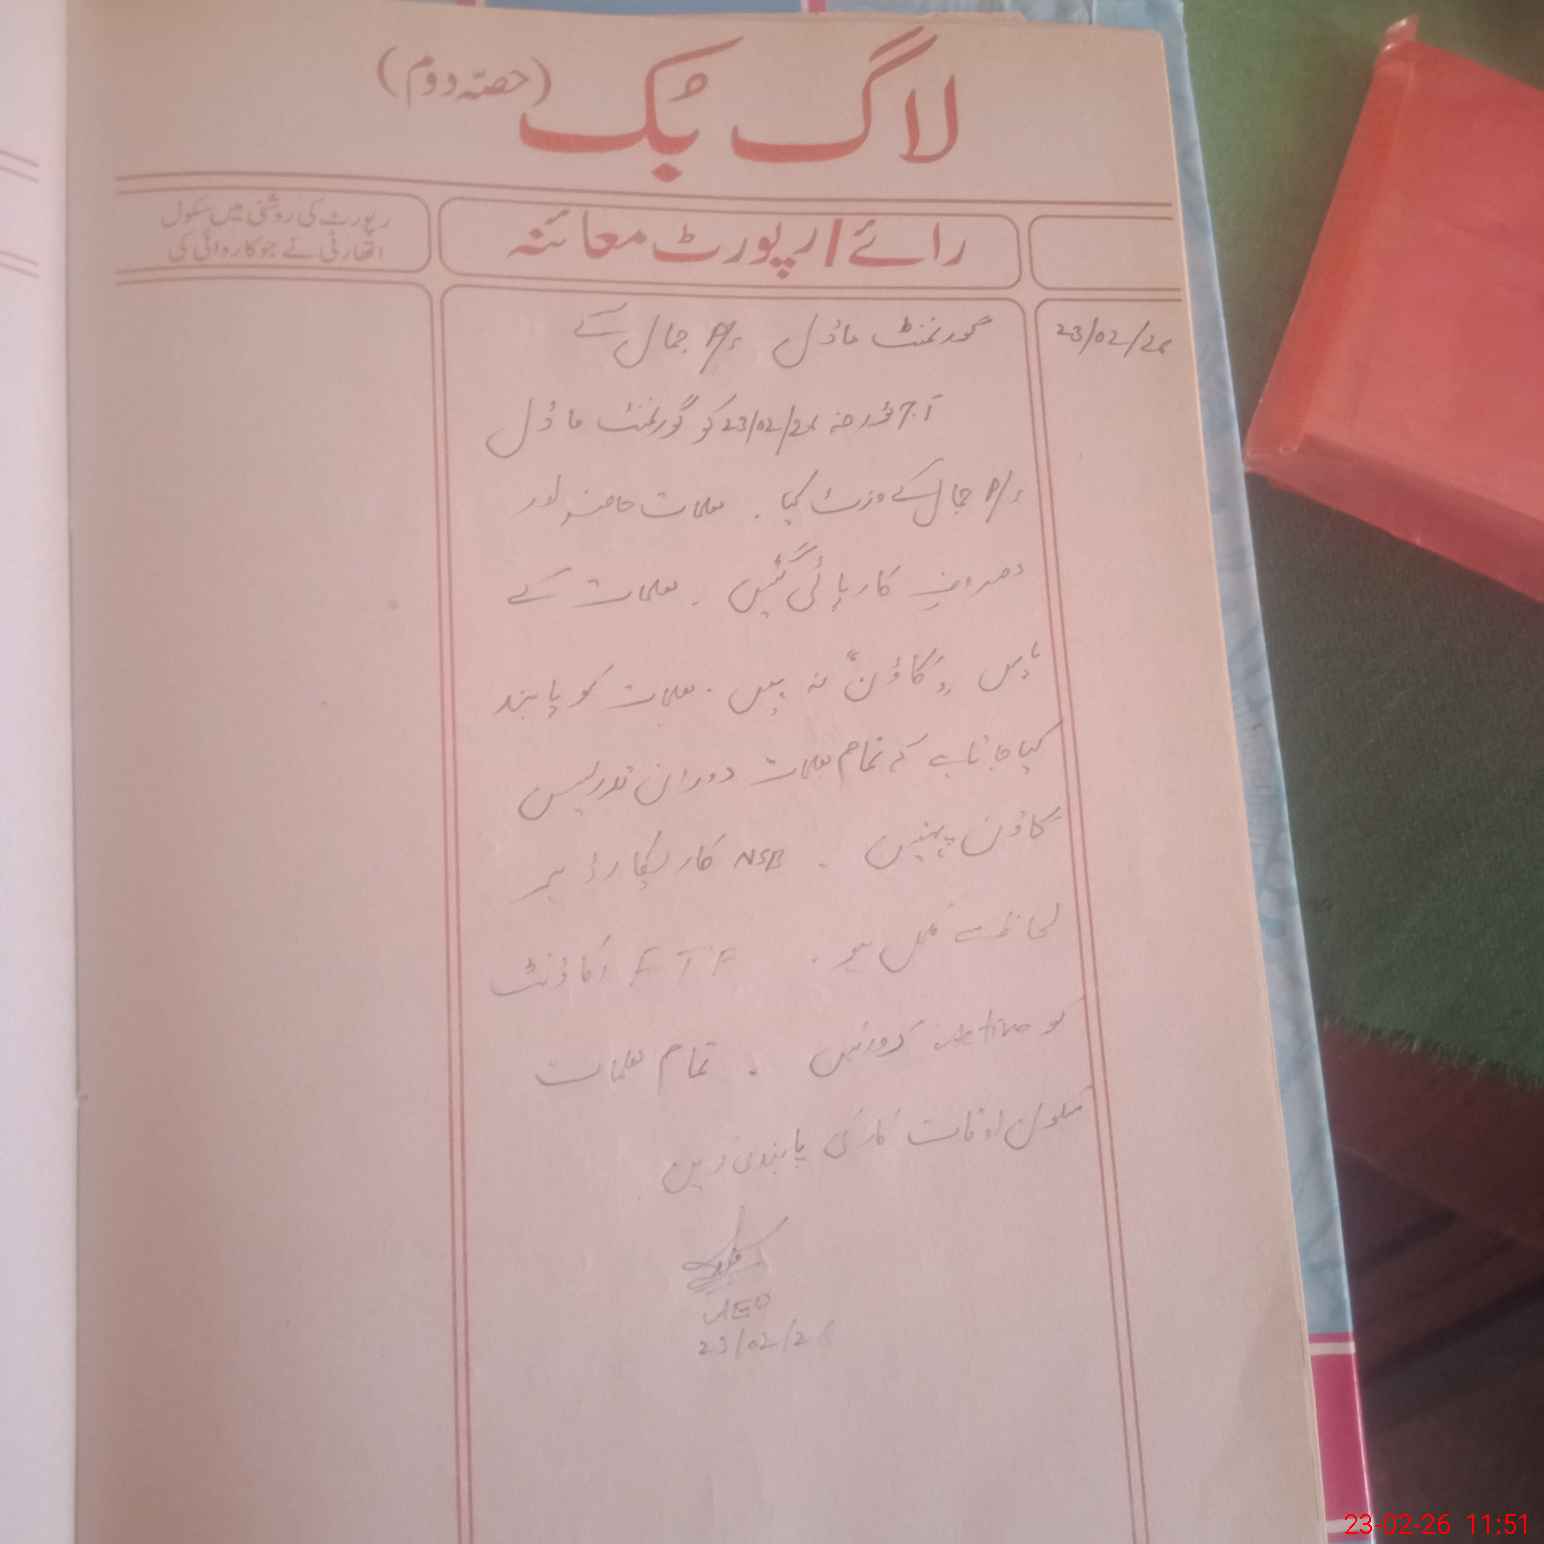 لاگ بُک (حصّہ دوم)
رائے / رپورٹ معائنہ
رپورٹ کی روشنی میں سکول
اتھارٹی نے جو کاروائی کی
23/02/26
گورنمنٹ ماڈل P/S جمال کے
آج مورخہ 23/02/26 کو گورنمنٹ ماڈل
P/S جمال کے وزٹ کیا ۔ معلمات حاضر اور
مصروفِ کار پائی گئیں ۔ معلمات کے
پاس "گاؤن" نہ ہیں ۔ معلمات کو پابند
کیا جاتا ہے کہ تمام معلمات دوران تدریس
گاؤن پہنیں ۔ NSB کا ریکارڈ ہر
لحاظ سے مکمل ہے ۔ FTF اکاؤنٹ
کو active کروائیں ۔ تمام معلمات
سکول اوقات کار کی پابندی کریں
AEO
23/02/26
23-02-26 11:51